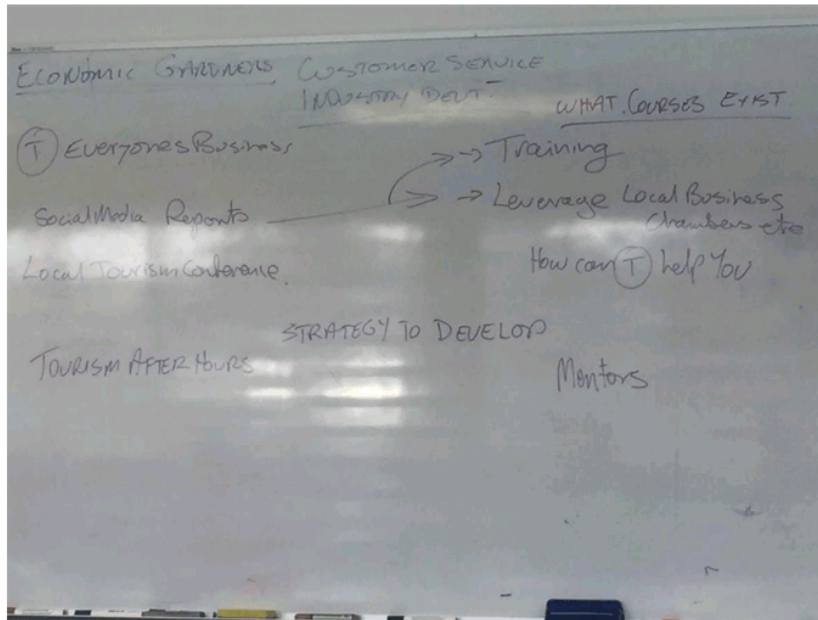 ECONOMIC GARDNERS
CUSTOMER SERVICE
INDUSTRY DEVT.
WHAT COURSES EXIST
T Everyones Business
→ Training
Social Media Reports
→ Leverage Local Business
Chambers etc
Local Tourism Conference.
How can T help You
STRATEGY TO DEVELOP
TOURISM AFTER HOURS
Mentors